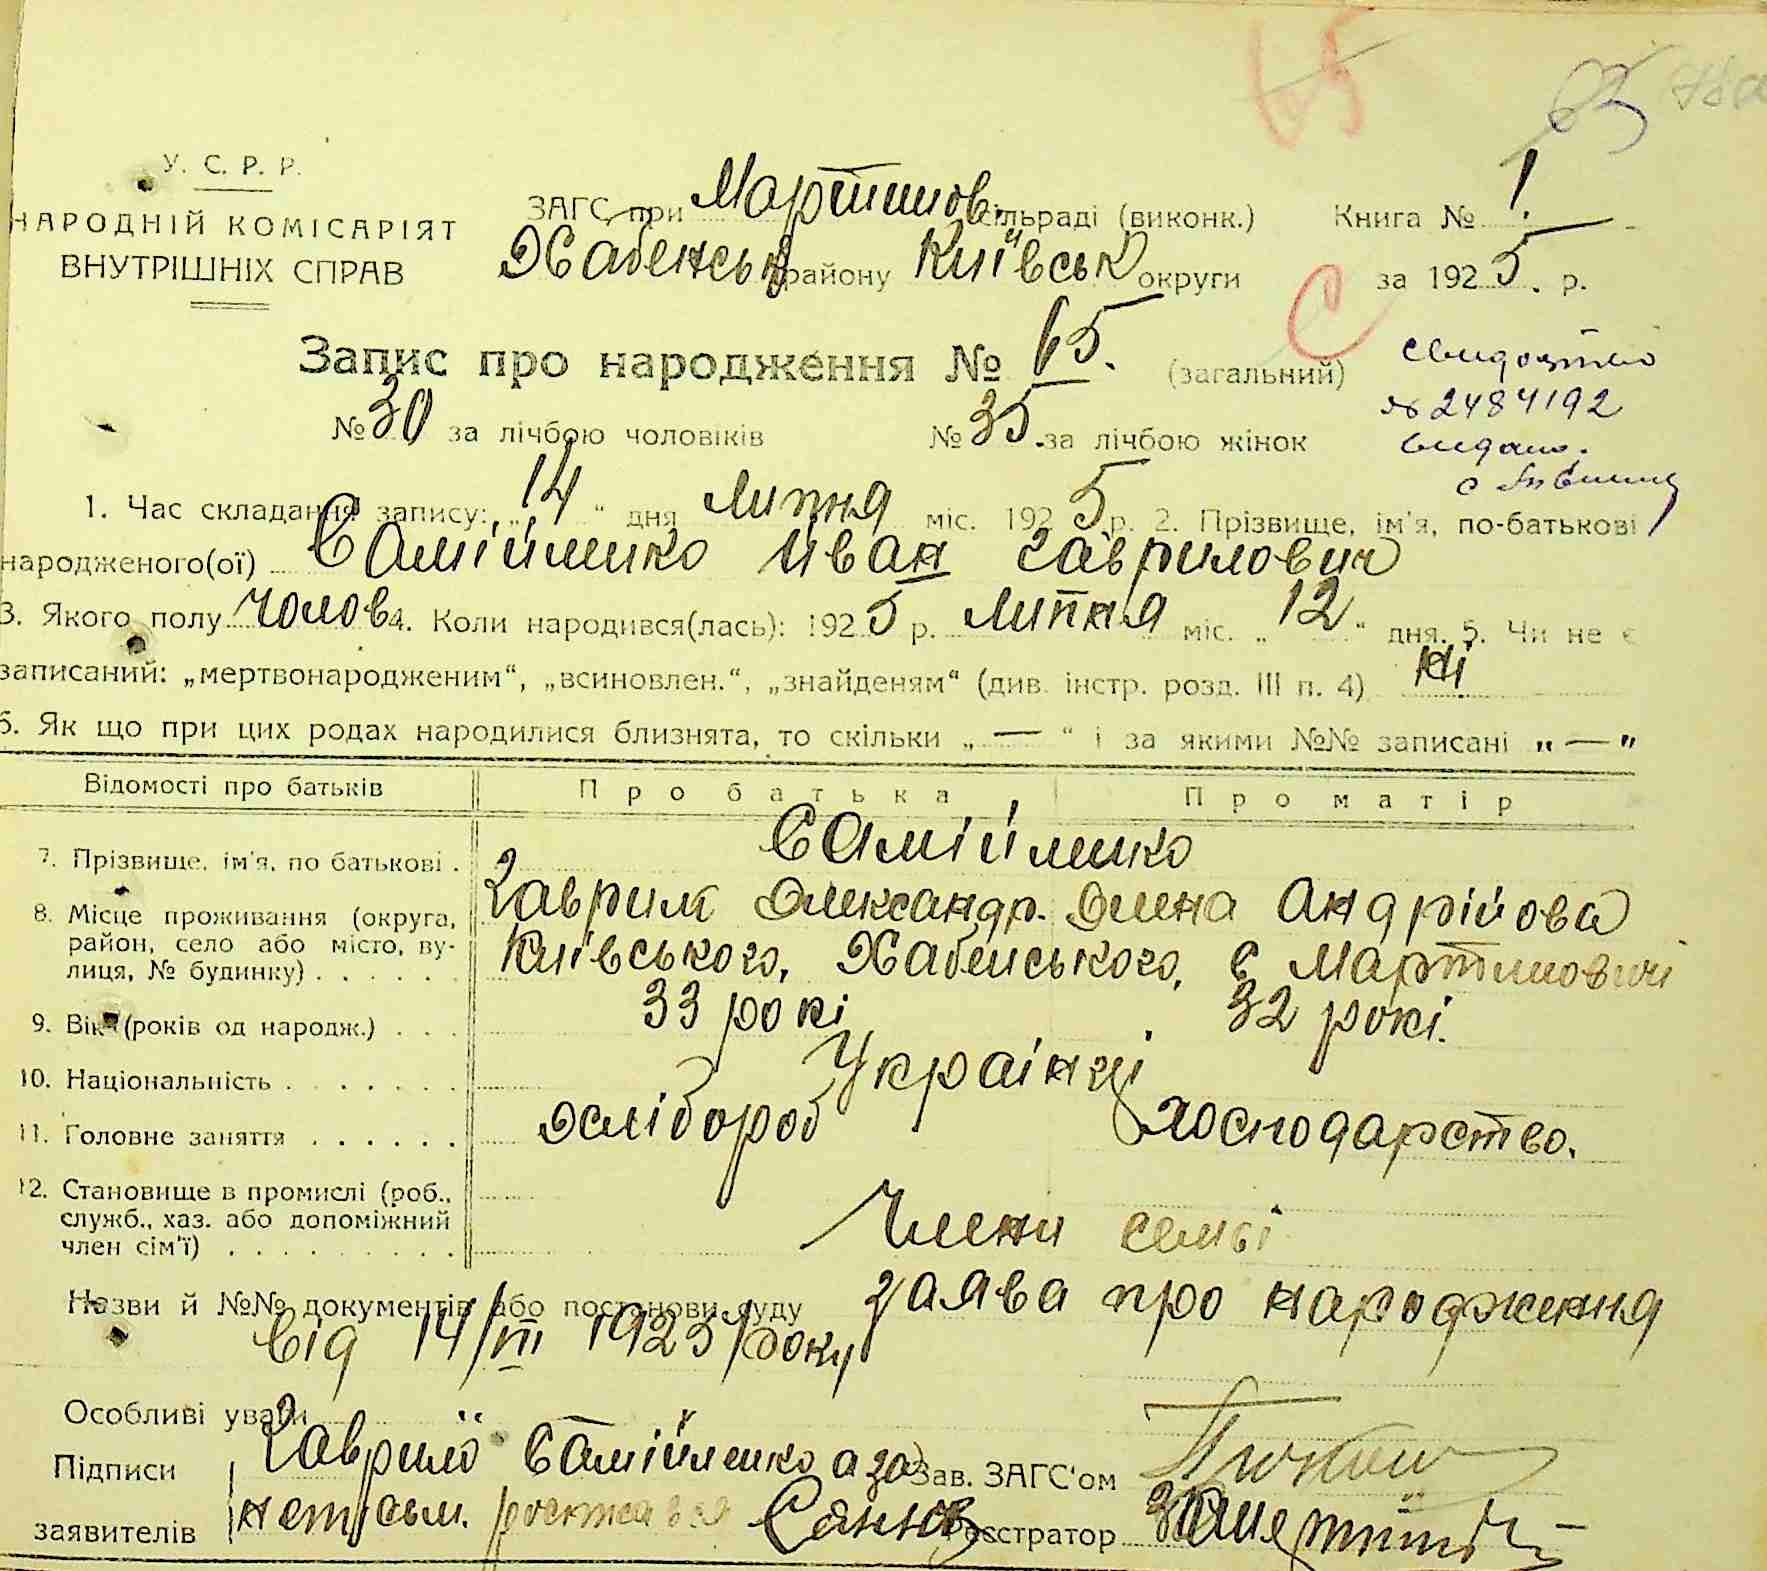 65
У. С. Р. Р.
НАРОДНІЙ КОМІСАРІЯТ
ВНУТРІШНІХ СПРАВ
ЗАГС при Мартинов. сільраді (виконк.) Книга № 1.
Хабенськ району Київськ округи за 1925. р.
С
Запис про народження № 65. (загальний)
свидоцтво
№ 2484192
видано.
№ 30 за лічбою чоловіків № 35. за лічбою жінок
1. Час складання запису: „14“ дня Липня міс. 1925 р. 2. Прізвище, ім'я, по-батькові
народженого(ої) Самійленко Иван Гаврилович
3. Якого полу чолов 4. Коли народився(лась): 1925 р. Липня міс. „12“ дня. 5. Чи не є
записаний: „мертвонародженим“, „всиновлен.“, „знайденям“ (див. інстр. розд. III п. 4) Ні
6. Як що при цих родах народилися близнята, то скільки „—“ і за якими №№ записані „—“
Відомості про батьків Про батька Про матір
7. Прізвище, ім'я, по батькові . Самійленко
Гаврило Олександр. Олена Андрійова
8. Місце проживання (округа, район, село або місто, вулиця, № будинку) . . . . . . Київського, Хабенського, с Мартиновичі
9. Вік (років од народж.) . . . 33 рокі 32 рокі.
10. Національність . . . . . . . Українці
11. Головне заняття . . . . . . Хлібороб Господарство.
12. Становище в промислі (роб., служб., хаз. або допоміжний член сім'ї) . . . . . . . . . Члени семьі
Назви й №№ документів або постанови суду заява про народження
від 14/VII 1925 року
Особливі уваги
Підписи Гаврило Самійленко а за Зав. ЗАГС'ом
заявителів неписьм. Реєстратор